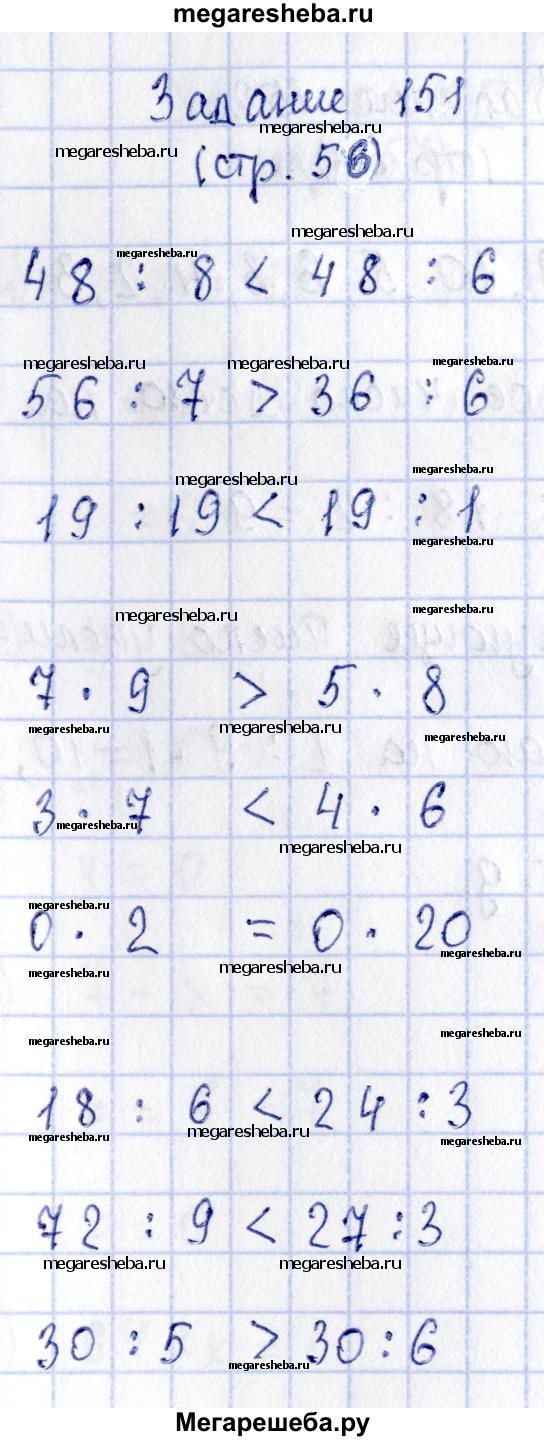 megaresheba.ru
Задание 151
megaresheba.ru
megaresheba.ru
(стр. 56)
megaresheba.ru
megaresheba.ru
48 : 8 < 48 : 6
megaresheba.ru megaresheba.ru megaresheba.ru
56 : 7 > 36 : 6
megaresheba.ru
megaresheba.ru
19 : 19 < 19 : 1
megaresheba.ru
megaresheba.ru
megaresheba.ru
7 · 9 > 5 · 8
megaresheba.ru megaresheba.ru megaresheba.ru
3 · 7 < 4 · 6
megaresheba.ru
megaresheba.ru
megaresheba.ru
0 · 2 = 0 · 20
megaresheba.ru
megaresheba.ru megaresheba.ru
megaresheba.ru
megaresheba.ru
18 : 6 < 24 : 3
megaresheba.ru megaresheba.ru megaresheba.ru
72 : 9 < 27 : 3
megaresheba.ru megaresheba.ru
30 : 5 > 30 : 6
megaresheba.ru
Мегарешеба.ру